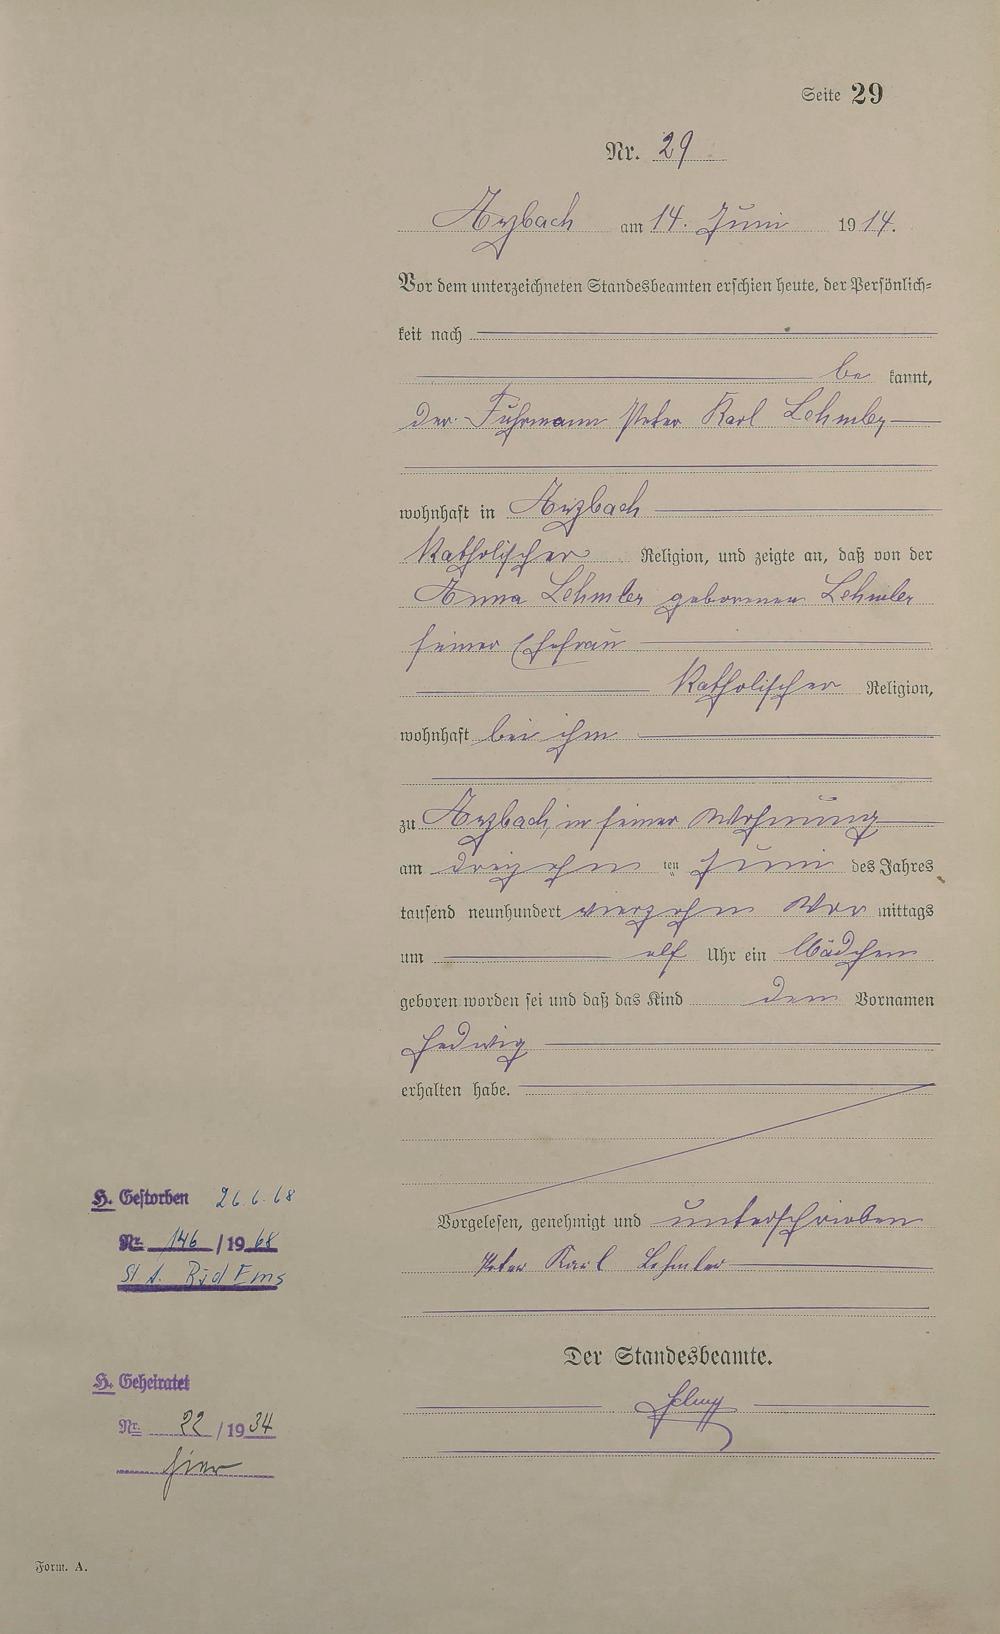 Seite 29
Nr. 29
Arzbach am 14. Juni 1914.
Vor dem unterzeichneten Standesbeamten erschien heute, der Persönlich=
keit nach
be kannt,
der Fuhrmann Peter Karl Lehmler
wohnhaft in Arzbach
katholischer Religion, und zeigte an, daß von der
Anna Lehmler geborenen Lehmler
seiner Ehefrau
katholischer Religion,
wohnhaft bei ihm
zu Arzbach, in seiner Wohnung
am dreizehn ten Juni des Jahres
tausend neunhundert vierzehn Vor mittags
um elf Uhr ein Mädchen
geboren worden sei und daß das Kind den Vornamen
Hedwig
erhalten habe.
Vorgelesen, genehmigt und unterschrieben
Peter Karl Lehmler
Der Standesbeamte.
H. Gestorben 26.6.68
Nr. 146 / 1968
St A. Bad Ems
H. Geheiratet
Nr. 22 / 1934
hier
Form. A.